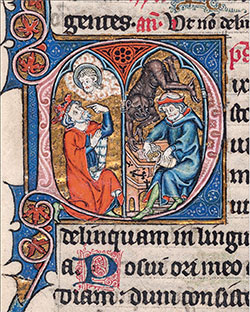 gentes. añ. Ut nõ delin
ix
delinquam in lingu
a Posui ori meo
diam: dum consist